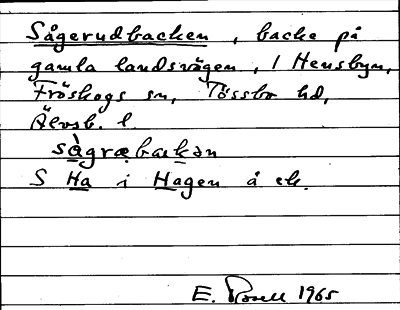 Sågerudbacken, backe på
gamla landsvägen, i Hensbyn,
Fröskogs sn, Tössbo hd,
Älvsb. l.
sàgræbackən
S Ha i Hagen å ek.
E. 1965